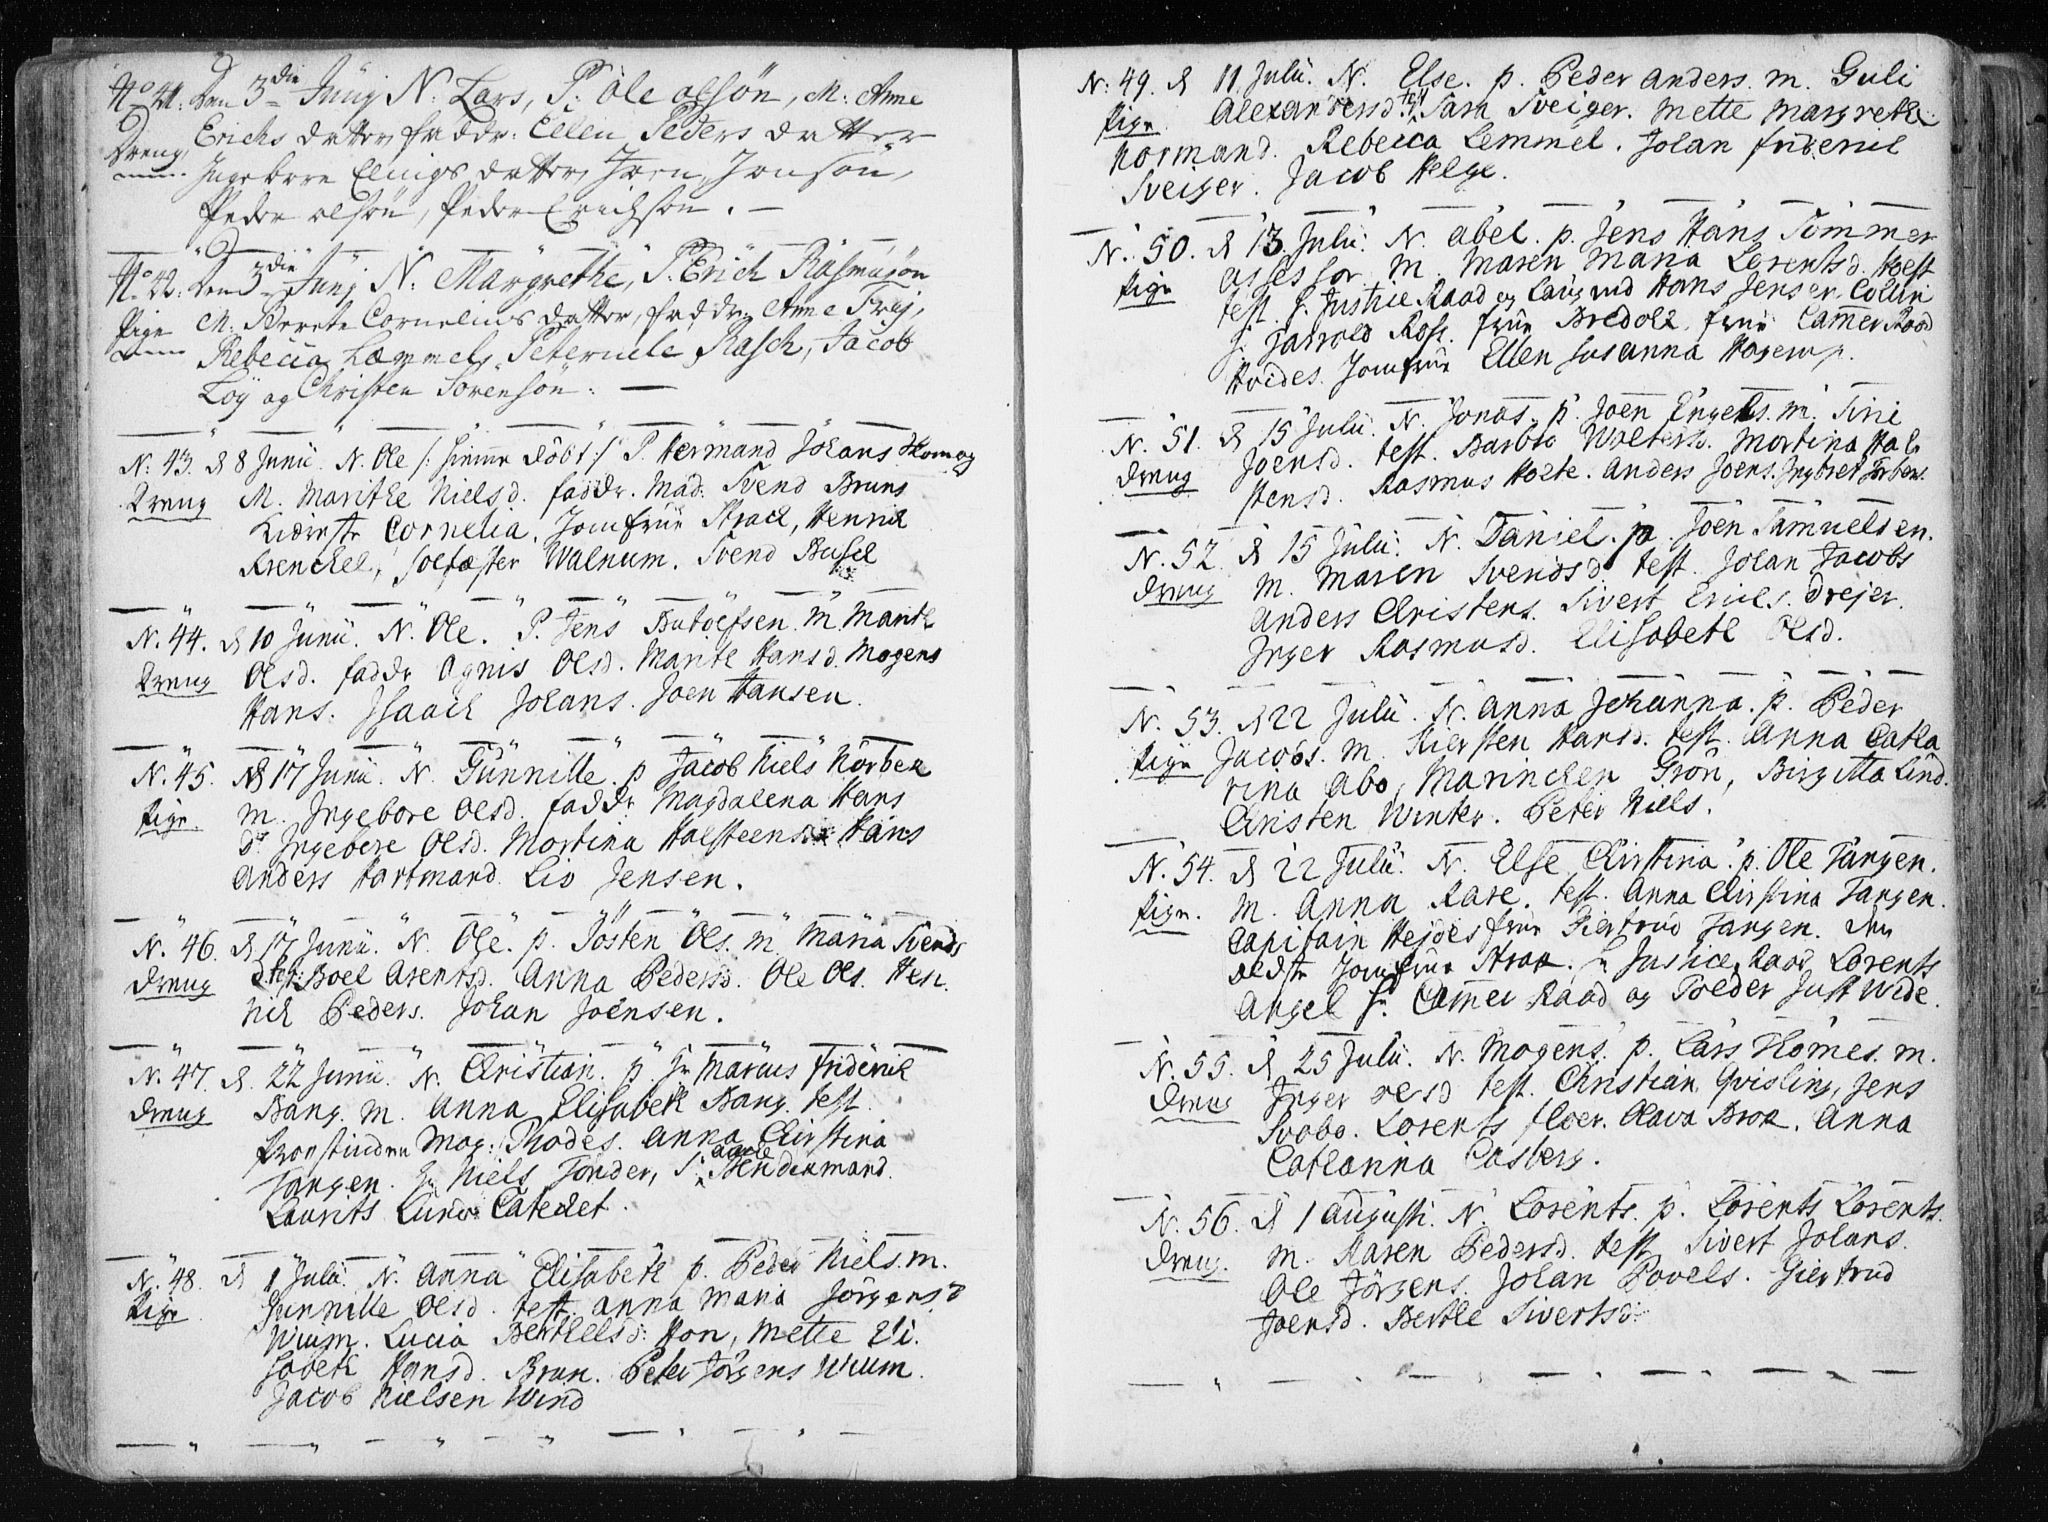 No 41: Den 3die Junij N: Lars, P: Ole olsön, M: Anne
Dreng Erichs datter, faddr: Ellen Peders datter
Ingebore Elings datter, Joen Jonsön,
Peder olsön, Peder Erichsön. —
No 42: Den 3die Junij N: Margrethe, P. Erich Rasmusön
Pige M: Berete Cornelius datter, faddr: Anne Frej,
Rebecca Læmmels, Peternelle Rasch, Jacob
Löy og Christen Sörensön: —
N: 43. d 8 Junii. N. Ole /: hiemme döbt :/ P. Hermand Johans Komag
Dreng M. Marithe Nielsd. faddr. Mad: Svend Bruns
Kiæreste Cornelia. Jomfrue Strach, Henrich
Krenchel, Svend Busch
N. 44. d 10 Junii. N. Ole. P. Jens Butoefsen. M. Marith
Dreng Olsd. faddr Ognis Olsd. Marite Hansd. Mogens
Hans. Isaach Johans. Joen Hansen.
N. 45. d 17 Junii. N. Gunnille. p Jacob Niels Norbek
Pige. m. Ingebore Olsd. faddr Magdalena Hans
d. Ingebore Olsd. Mortina Halsteens. Hans
Anders Hartmand. Liv Jensen.
N. 46. d 17 Junii. N. Ole. p. Josten Ols. m Maria Svends
Dreng d. test: Boel Arentsd. Anna Pedersd. Ole Ols. Hen
rich Peders. Johan Joensen.
N. 47. d. 22 Junii. N. Christian. p Hr Marcus Friderich
Dreng Bang. M. Anna Elisabeth Bang. test.
Provstinden Mag: Rhodes. Anna Christina
Tangen. Hr Niels Tönder, S: Aage Hendermand.
Laurits Lund Catechet.
N. 48. d 1 Julii. N. Anna Elisabeth p. Peder Niels. m.
Pige Gunnille Olsd. test. Anna Maria Jörgensd
Wium. Lucia Berthelsd: Hon, Mette Eli
sabeth Hansd. Brun. Peter Jörgens Wium.
Jacob Nielsen Wind
N: 49. d 11 Julii. N. Else. p. Peder Anders. m. Guli
Pige Alexandersd. test Sara Sveiger. Mette Margrethe
Normand. Rebecca Lemmel. Johan friderich
Sveiger. Jacob Helge.
N. 50. d 13. Julii. N. Abel. p. Jens Hans Sommer
Pige assessor M. Maren Maria Lorentsd. Hoest
test. H. Justice Raad og Laugmd Hans Jensen Collin
H. Harrold Rose. frue Bredolt. frue Camer Raad
Hveides. Jomfrue Ellen Susanna Hagerup.
N. 51. d 15 Julii. N. Jonas. p. Joen Engels. m. Siri
Dreng Joensd. test. Barbro Woltersd. Mortina Hal
stensd. Rasmus Holte. Anders Joens. Ingbret Torbers.
N. 52. d 15 Julii. N. Daniel. p. Joen Samuelsen.
Dreng m. Maren Svendsd. test. Johan Jacobs
Anders Christens. Sivert Erichs. Drejer.
Inger Rasmusd. Elisabeth Olsd.
N. 53. d 22 Julii. N. Anna Johanna. p. Peder
Pige Jacobs. m. Kiersten Hansd. test. Anna Catha
rina Abo, Marinchen Grön, Birgitta Lind.
Christen Winter. Peter Niels.
N. 54. d 22 Julii. N. Else Christina. p. Ole Tangen.
Pige. m. Anna Rase. test. Anna Christina Tangen.
Capitain Hejdes frue Giertrud Tangen. den
ældste Jomfrue Strax. Hr Justice Raad Lorents
Angel Hr. Camer Raad og Foeder Just Wide.
N. 55. d 25 Julii. N. Mogens. p. Lars Thomes. m.
Dreng Inger Olsd test. Christian Qvisling, Jens
Svabo. Lorents floer. Olava Brox. Anna
Cathanna Casberg.
N. 56. d 1 Augusti. N. Lorents. p. Lorents Lorents.
Dreng. m. Karen Pedersd. test Sivert Johans.
Ole Jörgens. Johan Povels. Giertrud
Joensd. Berthe Sivertsd: